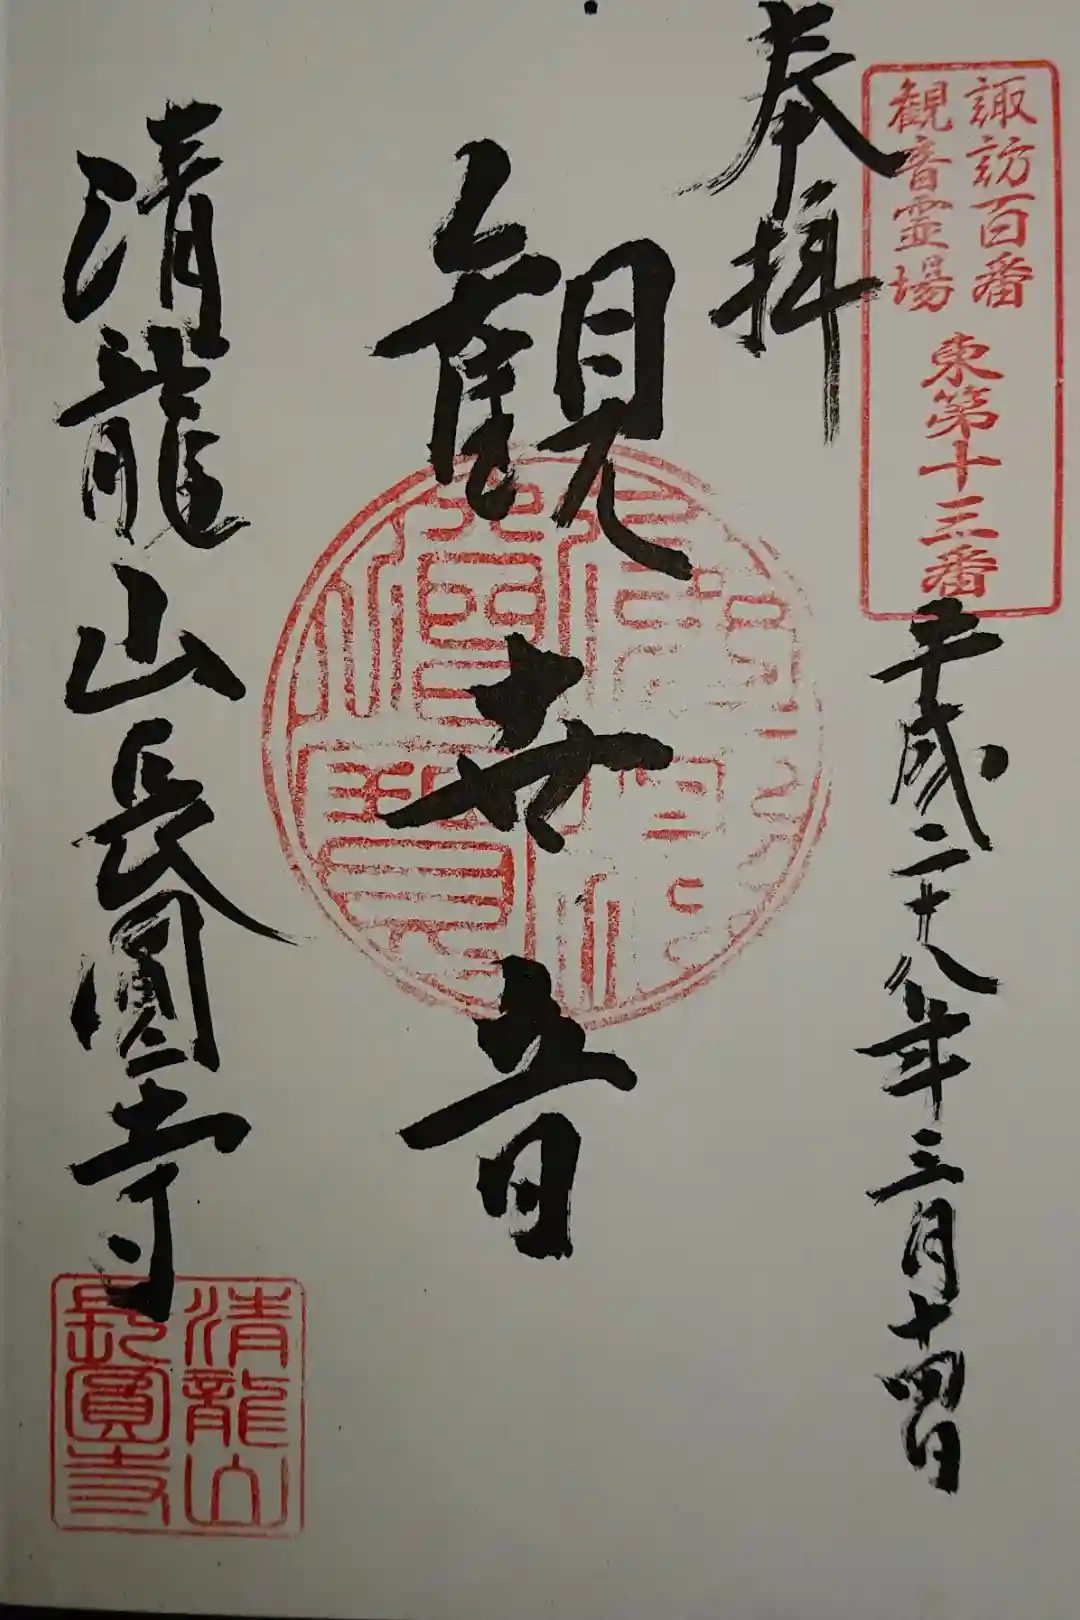 諏訪百番
観音霊場
東第十三番
奉拝
平成二十八年三月十四日
観世音
清龍山長圓寺
清龍山
長圓寺